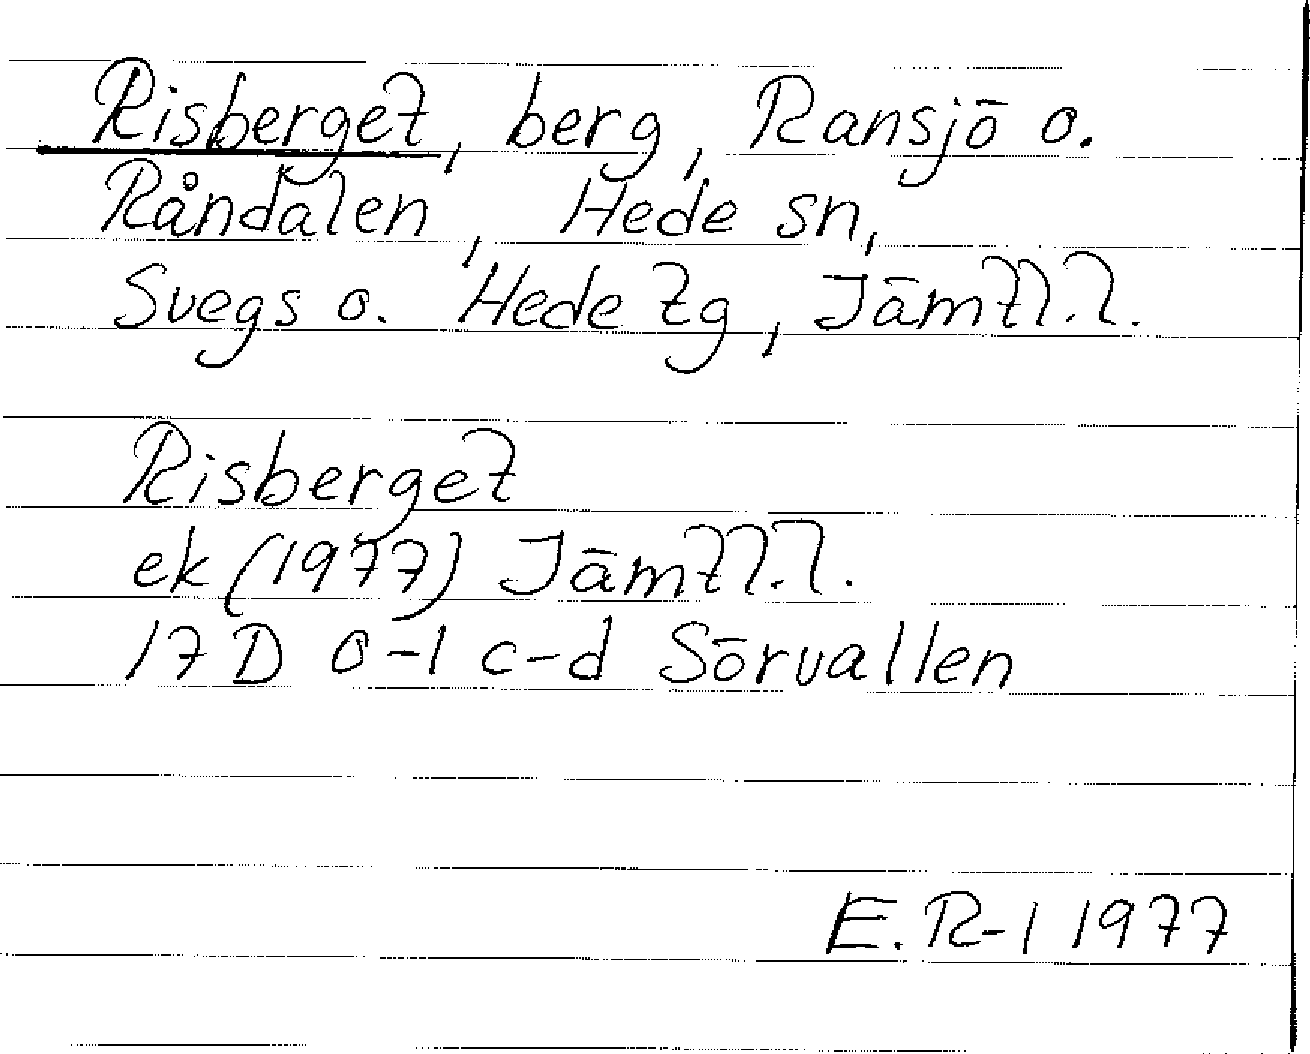 Risberget, berg, Ransjö o.
Råndalen, Hede sn,
Svegs o. Hede tg, Jämtl.l.
Risberget
ek (1977) Jämtl.l.
17 D 0-1 c-d Sörvallen
E. R-l 1977